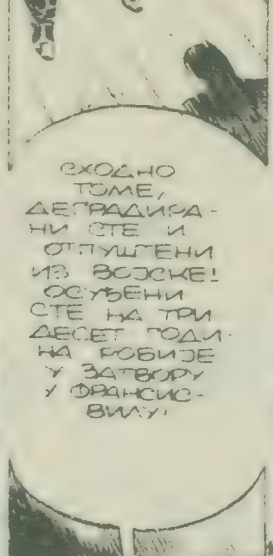 СХОДНО
ТОМЕ,
ДЕГРАДИРА-
НИ СТЕ И
ОТПУШТЕНИ
ИЗ ВОЈСКЕ!
ОСУЂЕНИ
СТЕ НА ТРИ
ДЕСЕТ ГОДИ-
НА РОБИЈЕ
У ЗАТВОРУ
У ФРАНСИС-
ВИЛУ!